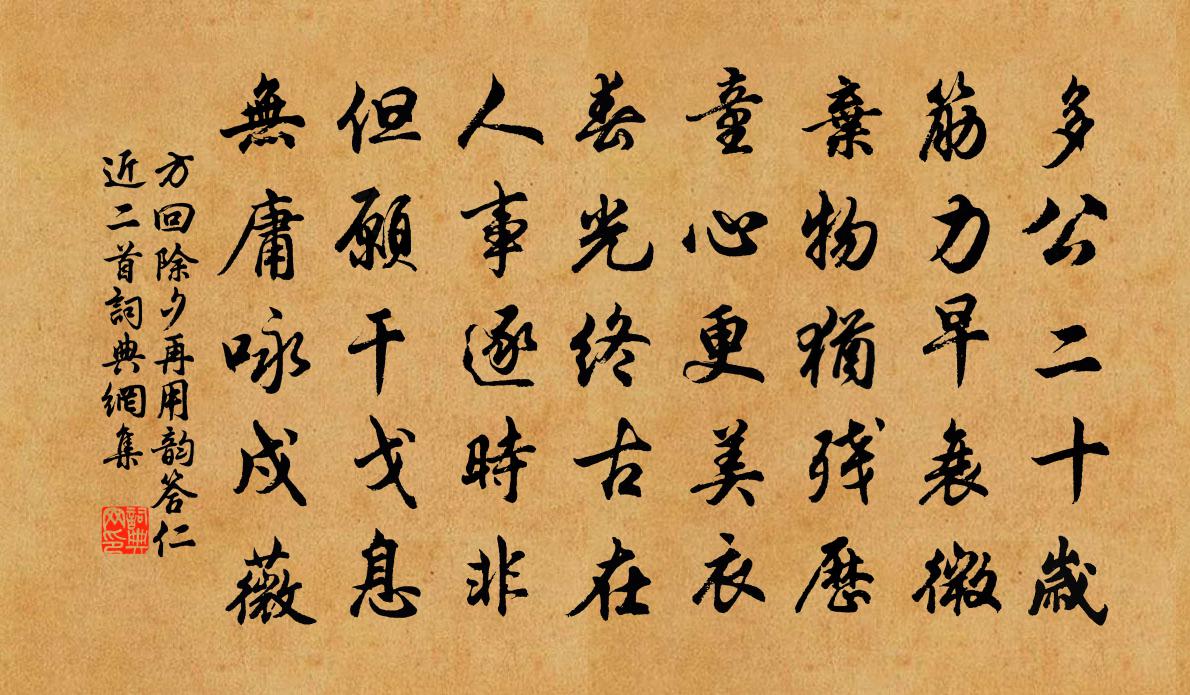 多公二十歲
筋力早衰微
棄物猶殘歷
童心更美衣
春光終古在
人事逐時非
但願干戈息
無庸咏戍薇
方回除夕再用韵答仁
近二首詞典網集